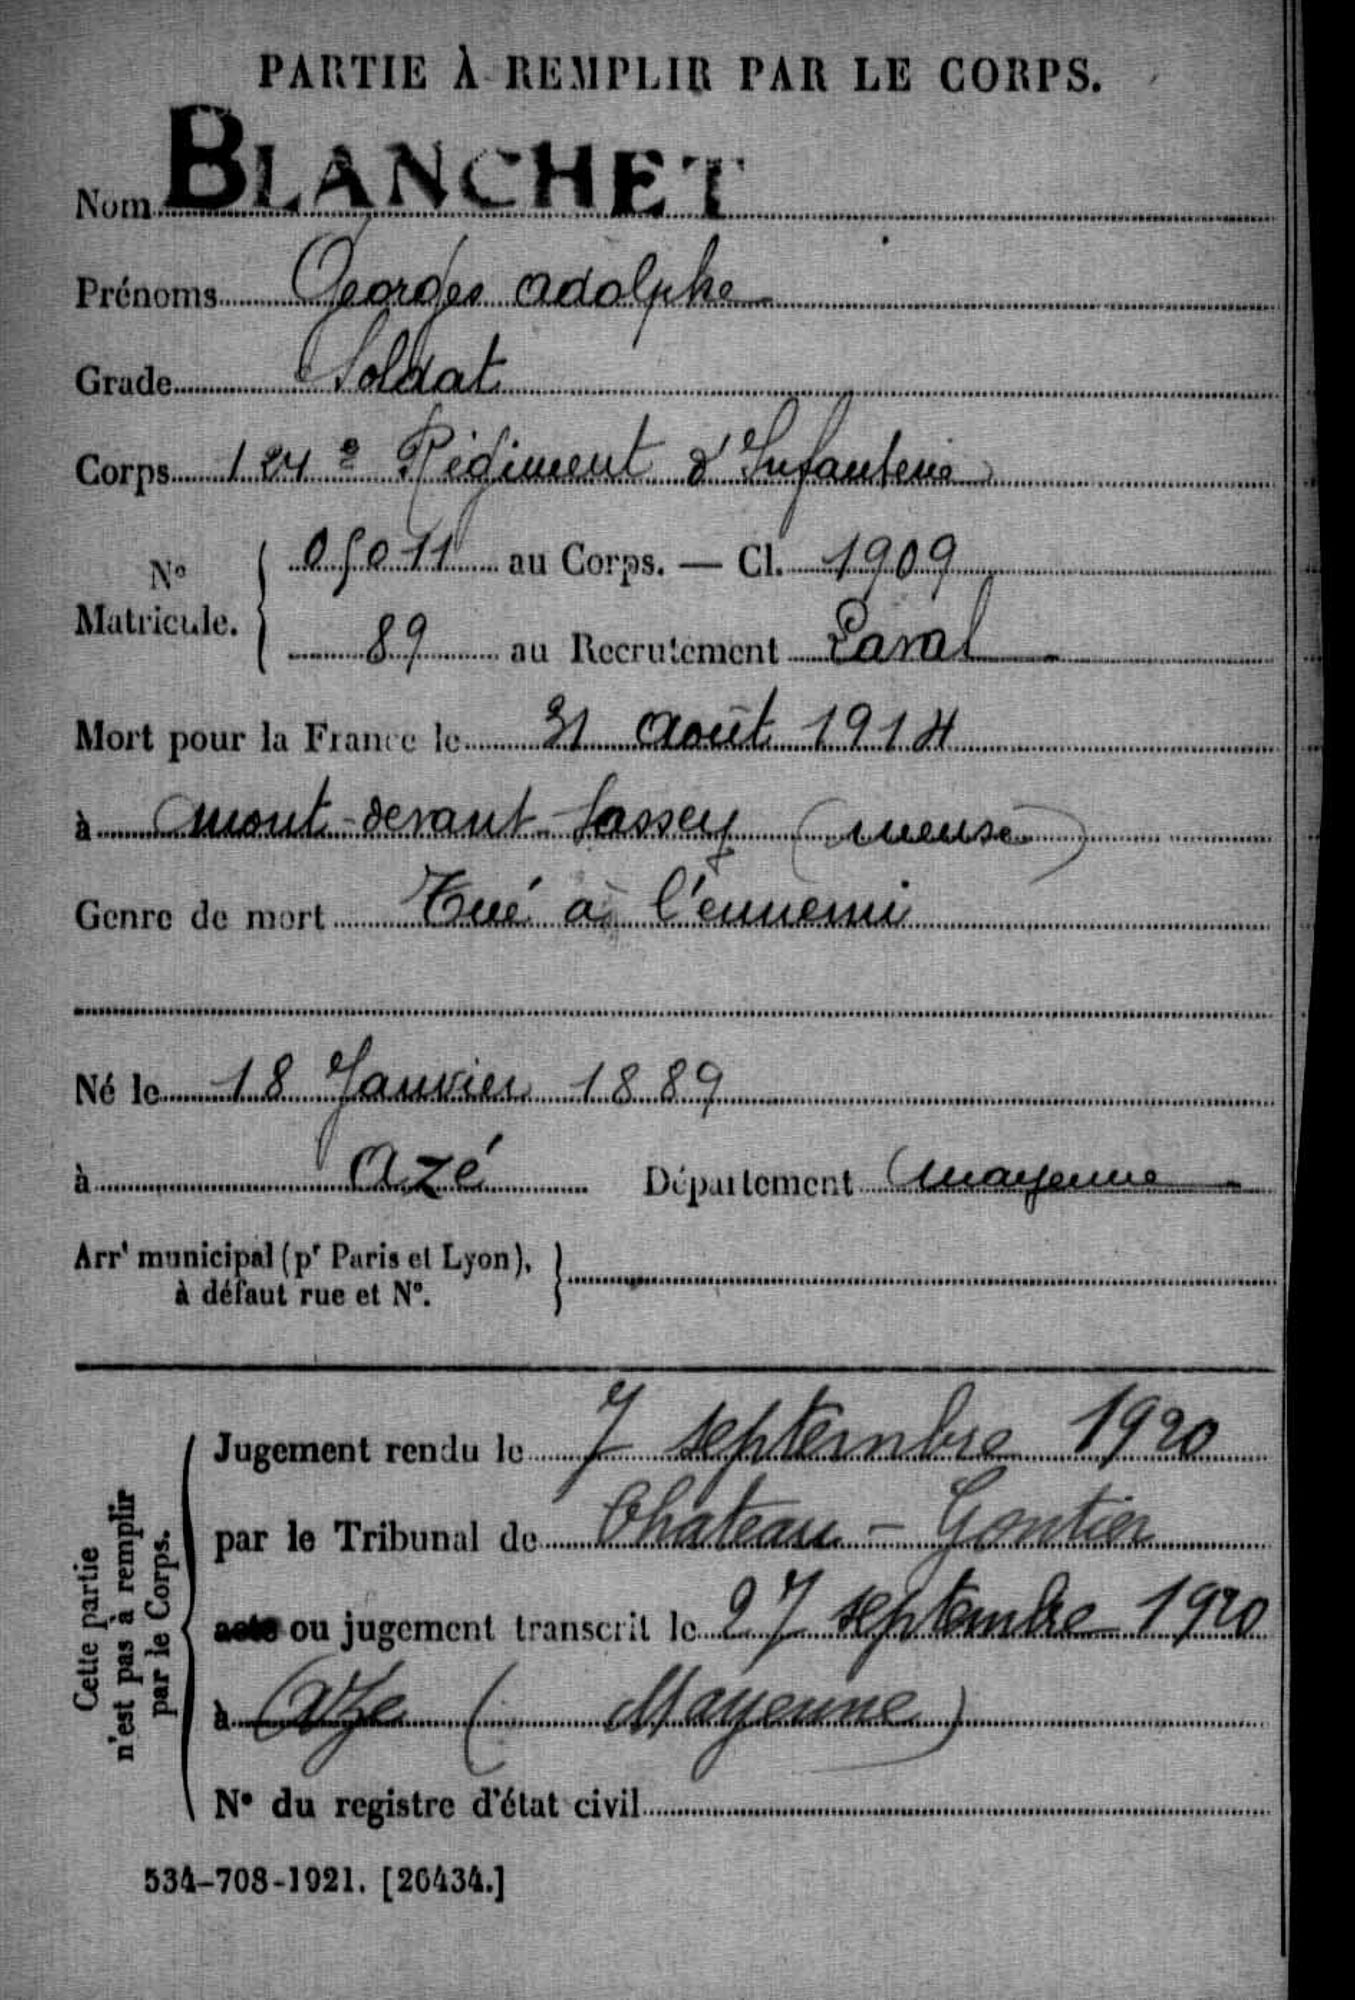 PARTIE À REMPLIR PAR LE CORPS.
Nom BLANCHET
Prénoms Georges Adolphe
Grade Soldat
Corps 124e Régiment d'Infanterie
No Matricule. 05011 au Corps. — Cl. 1909
89 au Recrutement Laval
Mort pour la France le 31 Août 1914
à Mont-devant-Sassey (Meuse)
Genre de mort Tué à l'ennemi
Né le 18 Janvier 1889
à Azé Département Mayenne
Arrt municipal (pr Paris et Lyon),
à défaut rue et No.
Cette partie
n'est pas à remplir
par le Corps.
Jugement rendu le 7 septembre 1920
par le Tribunal de Chateau-Gontier
acte ou jugement transcrit le 27 septembre 1920
à Azé (Mayenne)
No du registre d'état civil
534-708-1921. [26434.]